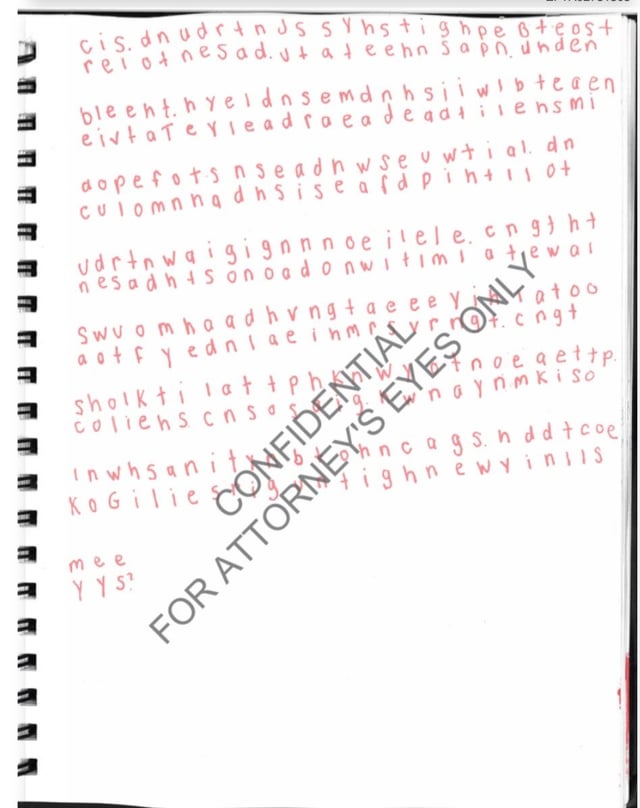 c i s. d n u d r t n J s s y h s t i g h p e B t e o s t
r e l o t n e s a d. u t a t e e h n s a p n. u n d e n
b l e e h t. h y e l d n s e m d n h s i i w l b t e a e n
e i v t a T e y l e a d r a e a d e a d t i l e n s m i
a o p e f o t s n s e a d h w s e u w t i a l. d n
c u l o m n h a d h s i s e a f d p i h t l l o t
u d r t n w a i g i g n n n o e i l e l e. c n g t h t
n e s a d h t s o n o a d o n w i t l m i a t e w a l
s w u o m h a a d h v n g t a e e e y a t o o
a o t f y e d n l a e i h m r n g t. c n g t
s h o l k t i l a t t p h k n w y t n o e a e t t p.
c o l i e h s c n s o s g. w n a y n m k i s o
I n w h s a n i t b o h n c a g s. h d d t c o e
K o G i l i e s g t i g h n e w y i n l l s
m e e
y y s?
CONFIDENTIAL
FOR ATTORNEY'S EYES ONLY